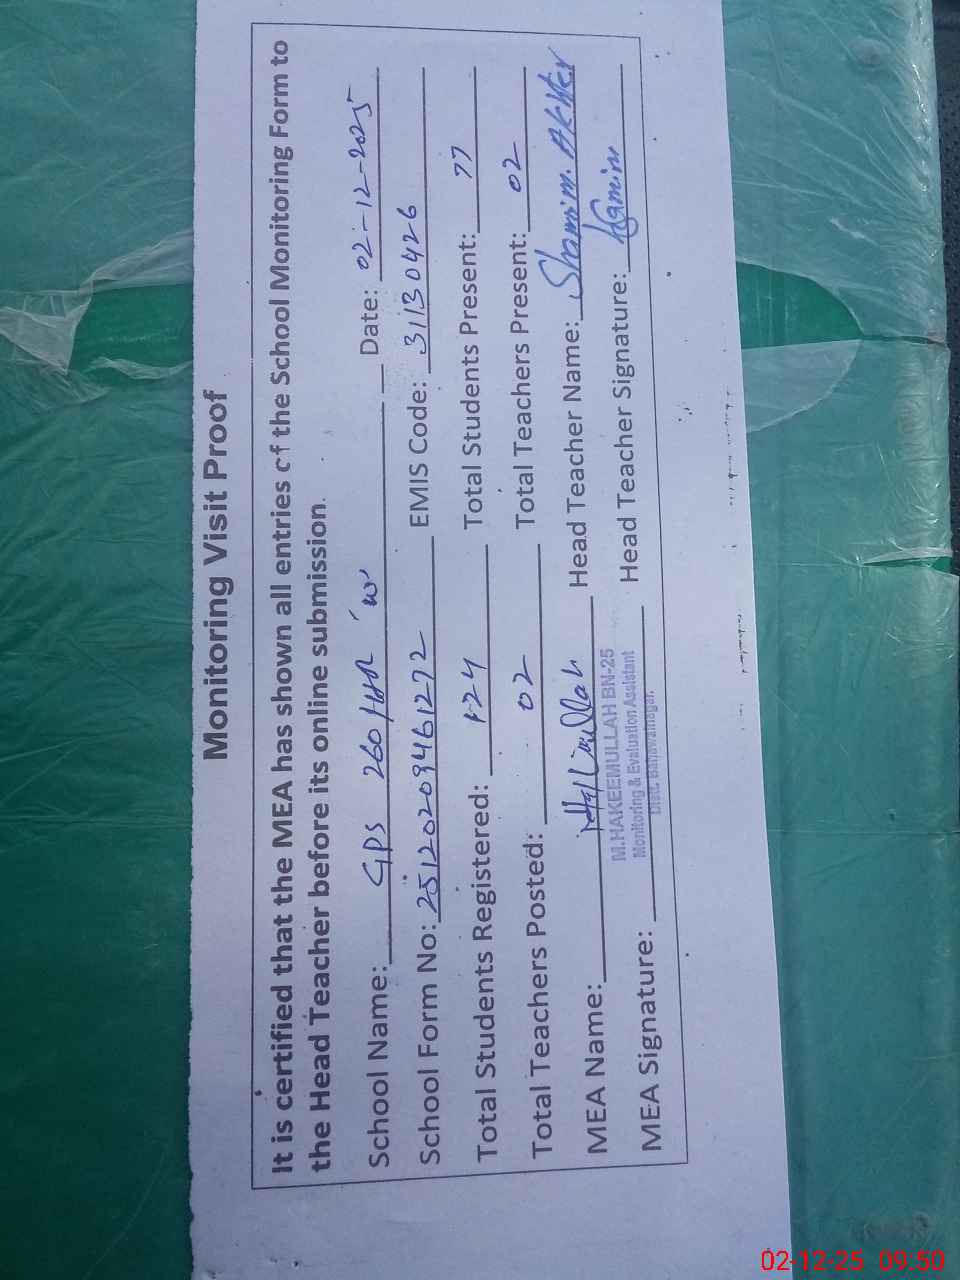 Monitoring Visit Proof
It is certified that the MEA has shown all entries of the School Monitoring Form to
the Head Teacher before its online submission.
School Name: GPS 260 HR 'W' Date: 02-12-2025
School Form No: 25120209461272 EMIS Code: 31130426
Total Students Registered: 124 Total Students Present: 77
Total Teachers Posted: 02 Total Teachers Present: 02
MEA Name: Head Teacher Name: Shamim Akhter
M.HAKEEMULLAH BN-25
MEA Signature: Monitoring & Evaluation Assistant Head Teacher Signature:
Distt. Bahawalnagar.
02-12-25 09:50